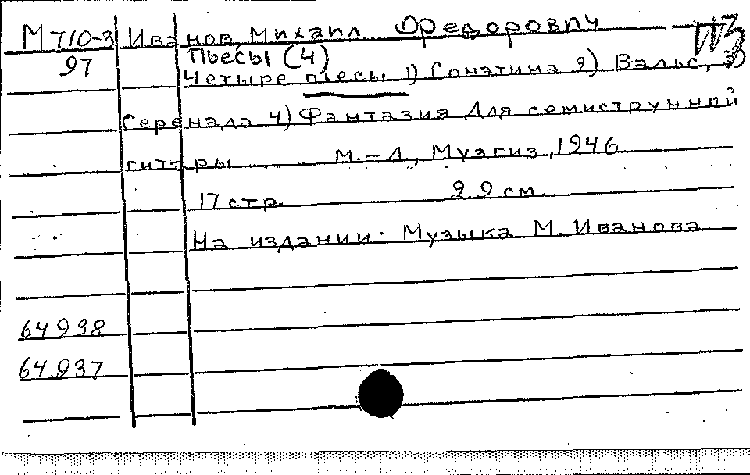 М 710-3 Иванов, Михаил Федорович
97 Пьесы (4)
Четыре пьесы 1) Сонатина 2) Вальс, 3)
Серенада 4) Фантазия Для семиструнной
гитары М.-Л, Музгиз, 1946
17 стр. 29 см
На издании: Музыка М. Иванова
64938
64937